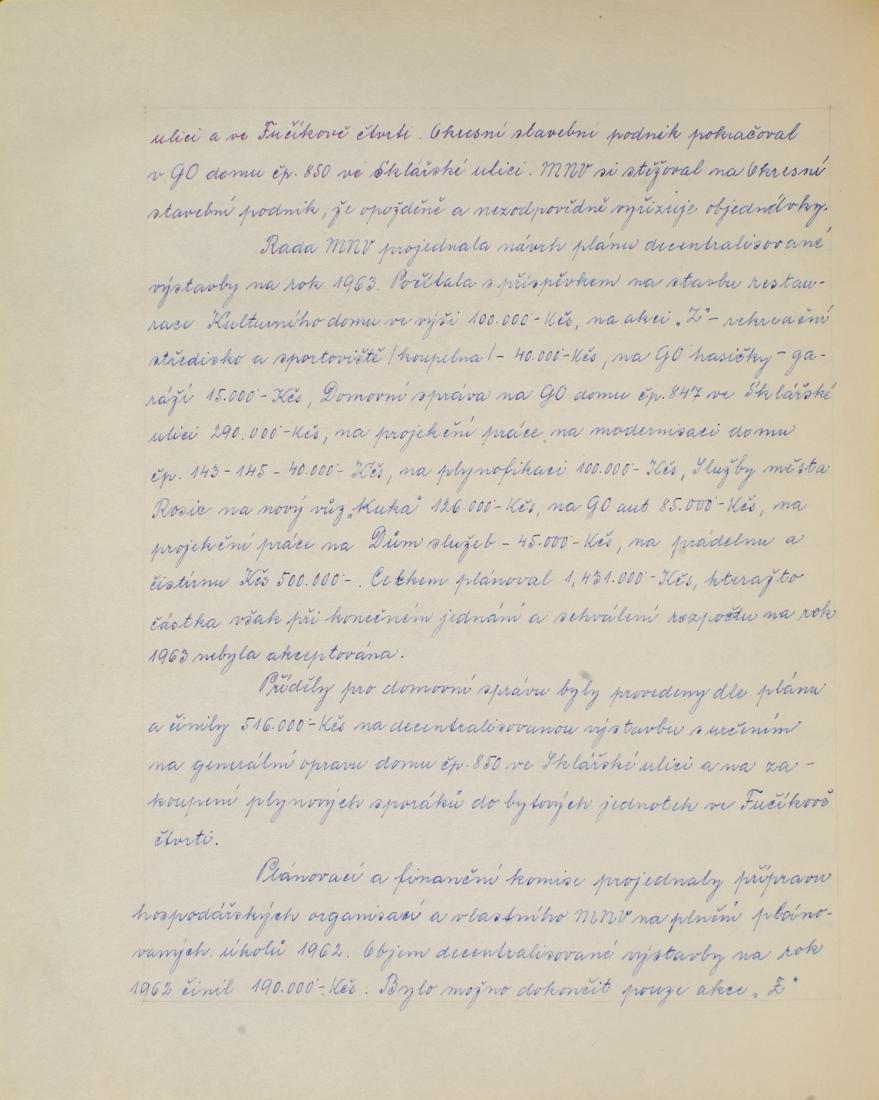 ulici a ve Fučíkově čtvrti. Okresní stavební podnik pokračoval
v GO domu čp. 850 ve Sklářské ulici. MNV si stěžoval na Okresní
stavební podnik, že opožděně a nezodpovědně vyřizuje objednávky.
Rada MNV projednala návrh plánu decentralisované
výstavby na rok 1963. Počítala s příspěvkem na stavbu restau-
race Kulturního domu ve výši 100.000-Kčs, na akci „Z"- rekreační
středisko a sportoviště /koupelna/- 40.000-Kčs, na GO hasičky-ga-
ráží 15.000-Kčs, Domovní správa na GO domu čp. 847 ve Sklářské
ulici 290.000-Kčs, na projekční práce na modernisaci domu
čp. 143-145 - 40.000- Kčs, na plynofikaci 100.000- Kčs, Služby města
Rosic na nový vůz „Kuka" 126.000-Kčs, na GO aut 85.000-Kčs, na
projekční práce na Dům služeb - 45.000-Kčs, na prádelnu a
čistírnu Kčs 500.000-. Celkem plánoval 1,431.000-Kčs, kteražto
částka však při konečném jednání a schválení rozpočtu na rok
1963 nebyla akceptována.
Příděly pro domovní správu byly provedeny dle plánu
a činily 516.000-Kčs na decentralisovanou výstavbu s určením
na generální opravu domu čp. 850 ve Sklářské ulici a na za-
koupení plynových sporáků do bytových jednotek ve Fučíkově
čtvrti.
Plánovací a finanční komise projednaly přípravu
hospodářských organisací a vlastního MNV na plnění pláno-
vaných úkolů 1962. Objem decentralisované výstavby na rok
1962 činil 190.000-Kčs. Bylo možno dokončit pouze akce „Z"